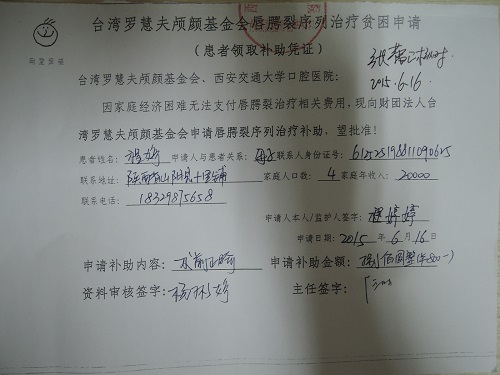 台湾罗慧夫颅颜基金会唇腭裂序列治疗贫困申请
(患者领取补助凭证)
台湾罗慧夫颅颜基金会、西安交通大学口腔医院:
2015.6.16
因家庭经济困难无法支付唇腭裂治疗相关费用,现向财团法人台
湾罗慧夫颅颜基金会申请唇腭裂序列治疗补助,望批准!
患者姓名: 申请人与患者关系:母子 联系人身份证号:
联系地址:陕西省山阳县十里铺 家庭人口数:4 家庭年收入:20000
联系电话:18329875658
申请人本人/监护人签字:程婷婷
申请日期:2015年6月16日
申请补助内容:术前正畸 申请补助金额:捌佰圆整(¥800-)
资料审核签字: 主任签字: